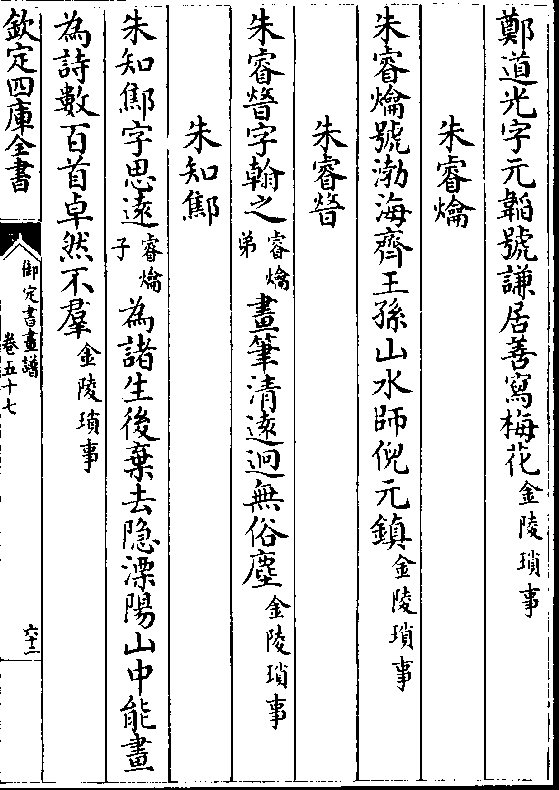 鄭道光字元韜號謙居善寫梅花金陵瑣事
朱睿爚
朱睿爚號渤海齊王孫山水師倪元鎮金陵瑣事
朱睿䇿
朱睿䇿字翰之睿爚弟畫筆清遠迥無俗塵金陵瑣事
朱知𤊟
朱知𤊟字思遠睿爚子為諸生後棄去隐溧陽山中能畫
為詩數百首卓然不羣金陵瑣事
欽定四庫全書
御定書畫譜
卷五十七
六十二